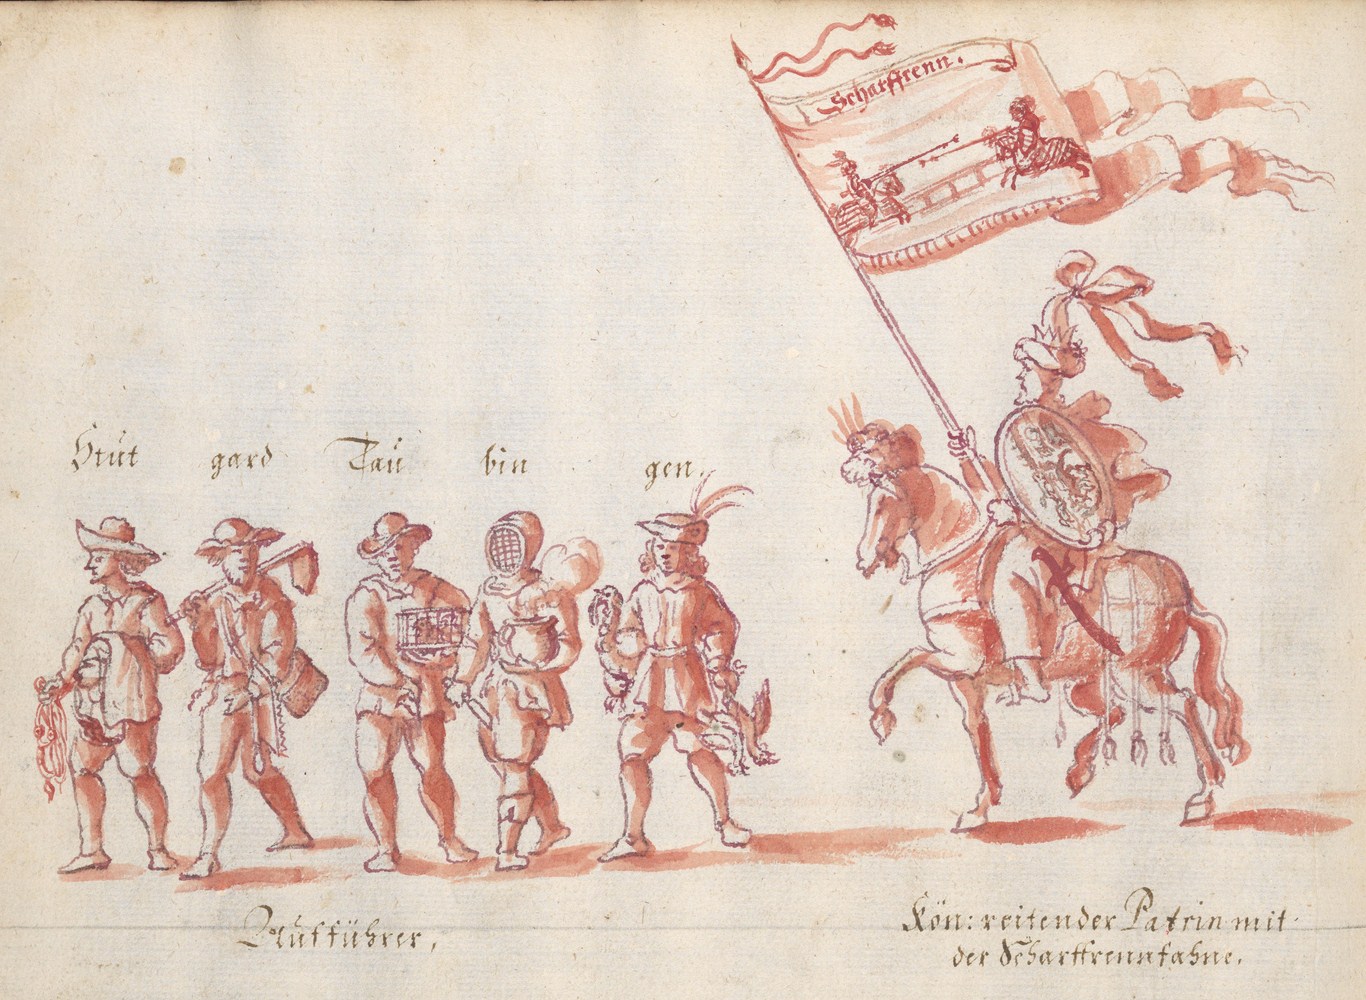 Scharffrenn.
Stut gard Tau bin gen.
Aufführer,
Kön: reitender Patrin mit
der Scharffrennfahne.